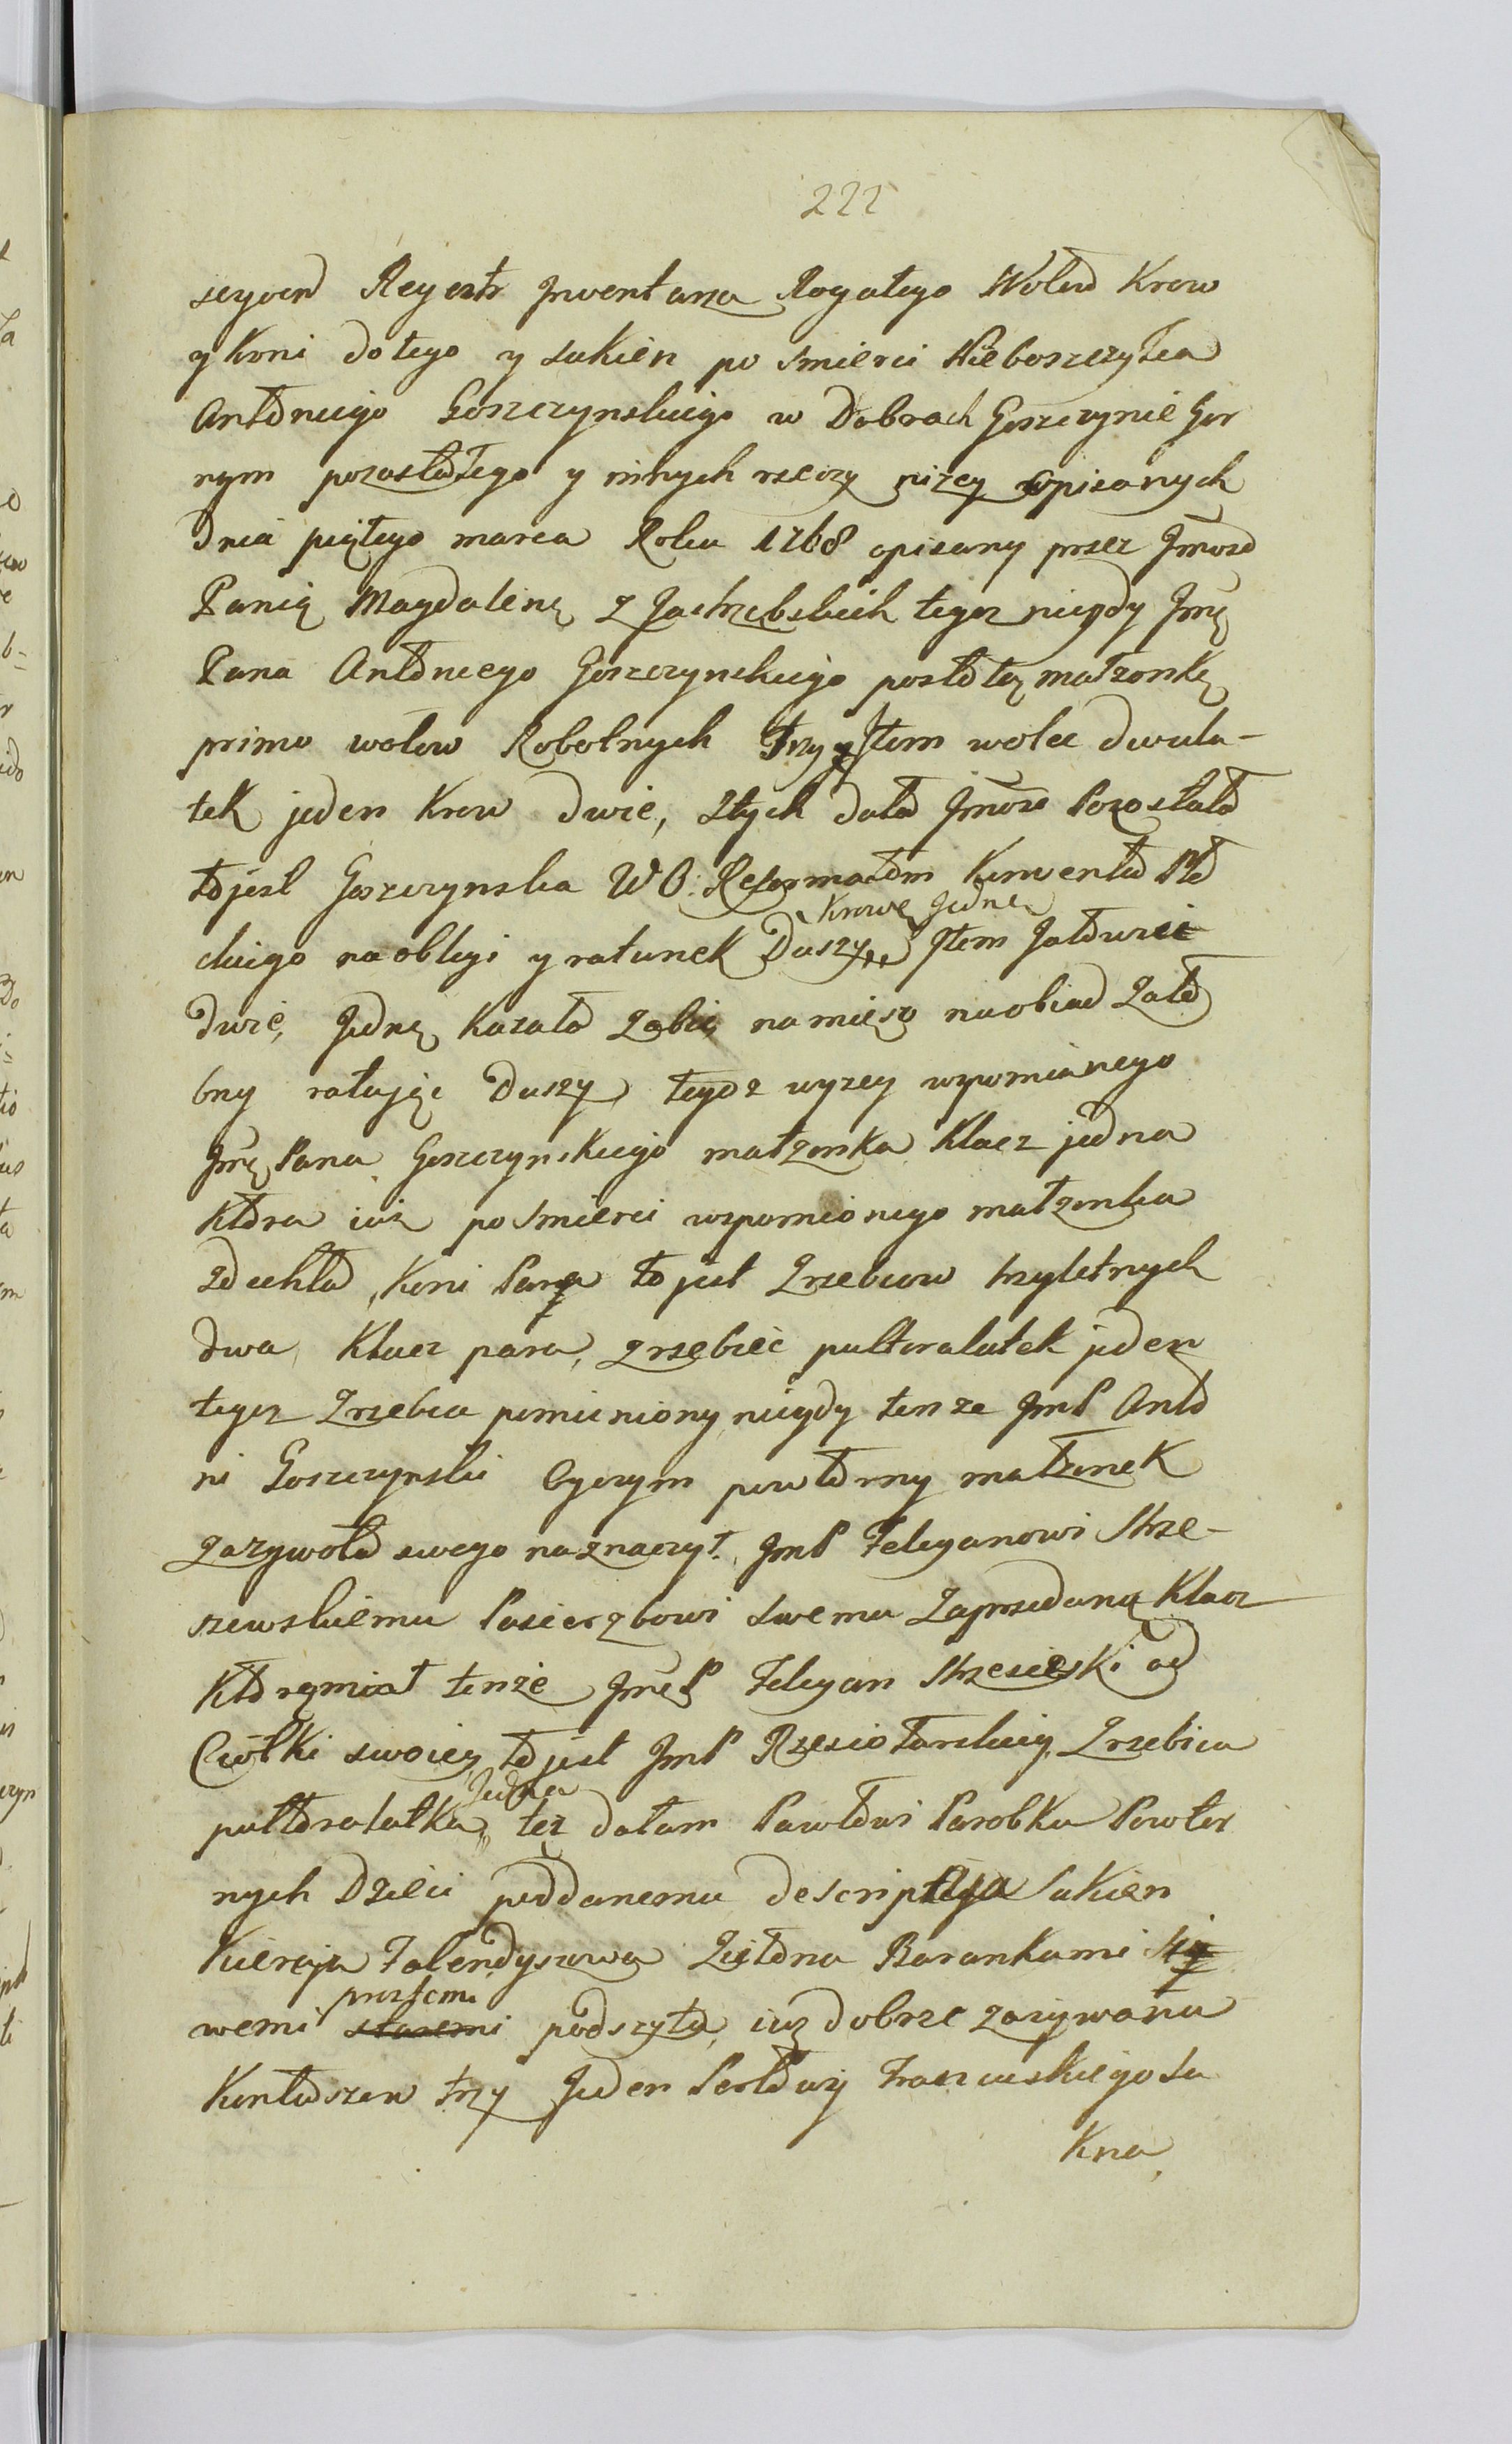 222
seqvens Reyestr Inwentarza Rogatego Wołow Krow
y Koni do tego y sukien po smierci Nieboszczyka
Antoniego Goszczynskiego w Dobrach Goszczynie Gor
nym pozostałego y innych rzeczy nizey opisanych
Dnia piątego marca Roku 1768 opisany przez Jmosc
Panią Magdalenę z Jastrzębskich tegoz niegdy Jmę
Pana Antoniego Goszczynskiego pozostałą małzonkę
primo wołow Robotnych trzy Item wołu dwula-
tek jeden Krow dwie, z tych dała Jmosc Pozostała
to jest Goszczynska WO. Reformatom Konwentu Pło
ckiego na obligi y ratunek Duszy Krowę Jednę Item Jałowic
Dwie, Jednę kazała zabic na mięso na obiad Zało
bny ratując Duszy tegoz wyzey wspomnianego
Jmę Pana Goszczynskiego małzonka Klacz jedna
Ktora iuz po smierci wspomnionego małzonka
zdechła, Koni Para to jest Zrzebcow trzyletnych
dwa Klacz para, zrzebiec pułtoralatek jeden
tegoz Zrzebca pomieniony niegdy tenze JmP Anto
ni Goszczynski Oyczym powtorny małzonek
za zywota swego naznaczył JmP Felicyanowi Strze-
szewskiemu Pasierzbowi swemu Zaprzedaną Klacz
Ktorą miał tenze JmęP Felicyan od
Ciotki swoiey to jest JmP Zrzebica
pułtoralatka Jedna tez dałam Pawłowi Parobku Powtor
nych Dzieci poddanemu descripcya Sukien
Kiereja Falendyszowa Zielona Barankami Si
wemi prostemi staremi podszyta, iuz dobrze zazywana
Kontuszow trzy Jeden Perłowy Francuskiego Su
Kna,